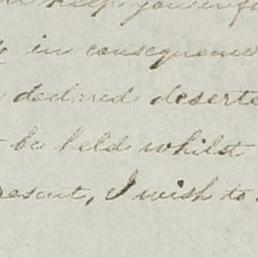 keep you inf
in consequence
declared deserte
be held whilst
resent, I wish to